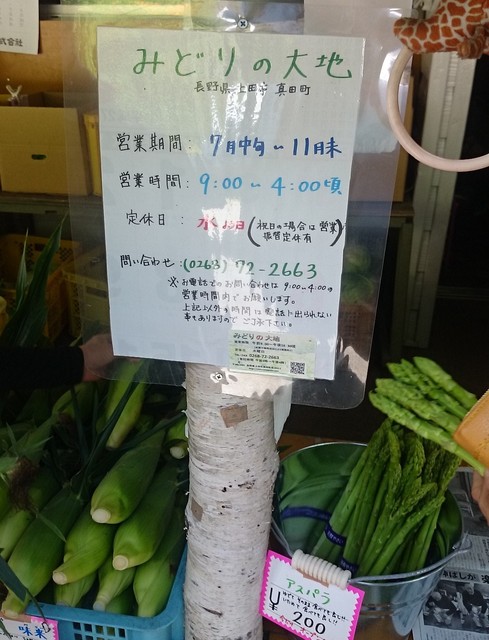 みどりの大地
長野県上田市 真田町
営業期間: 7月中旬〜11月末
営業時間: 9:00〜4:00頃
定休日: 水曜日(祝日の場合は営業
振替定休有)
問い合わせ:(0268)72-2663
※お電話でのお問い合わせは9:00〜4:00の
営業時間内でお願いします。
上記以外の時間は電話に出られない
事もありますのでご了承下さい。
みどりの大地
アスパラ
¥200
味来